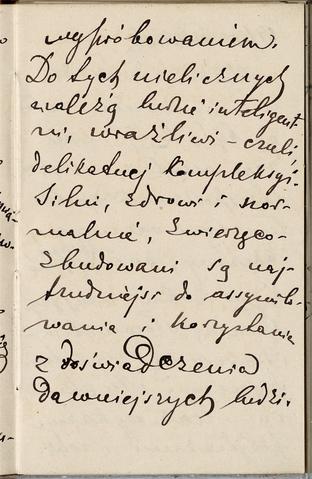 wypróbowaniem.
Do tych nielicznych
należą ludzie inteligent-
ni, wrażliwi - czuli,
delikatnej kompleksyi.
Silni, zdrowi i nor-
malnie, zwierzęco-
zbudowani są naj-
trudniejsi do assymilo-
wania i korzystania
z doświadczenia
dawniejszych ludzi.